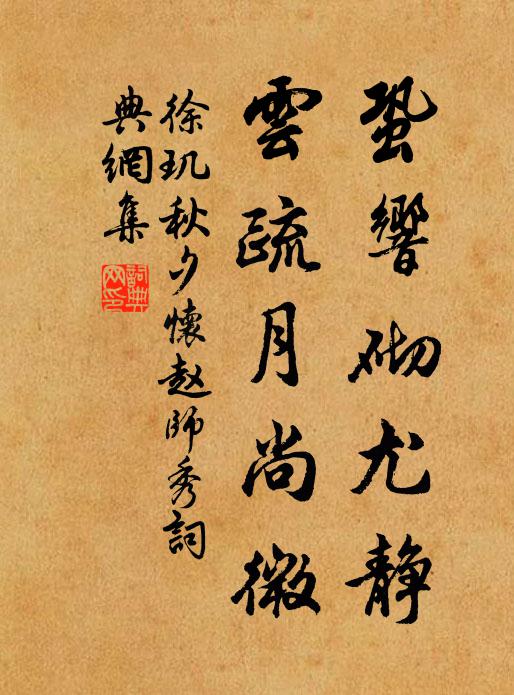 蛩響砌尤静
雲疏月尚微
徐玑秋夕懷赵師秀詞
典網集
詞典网印